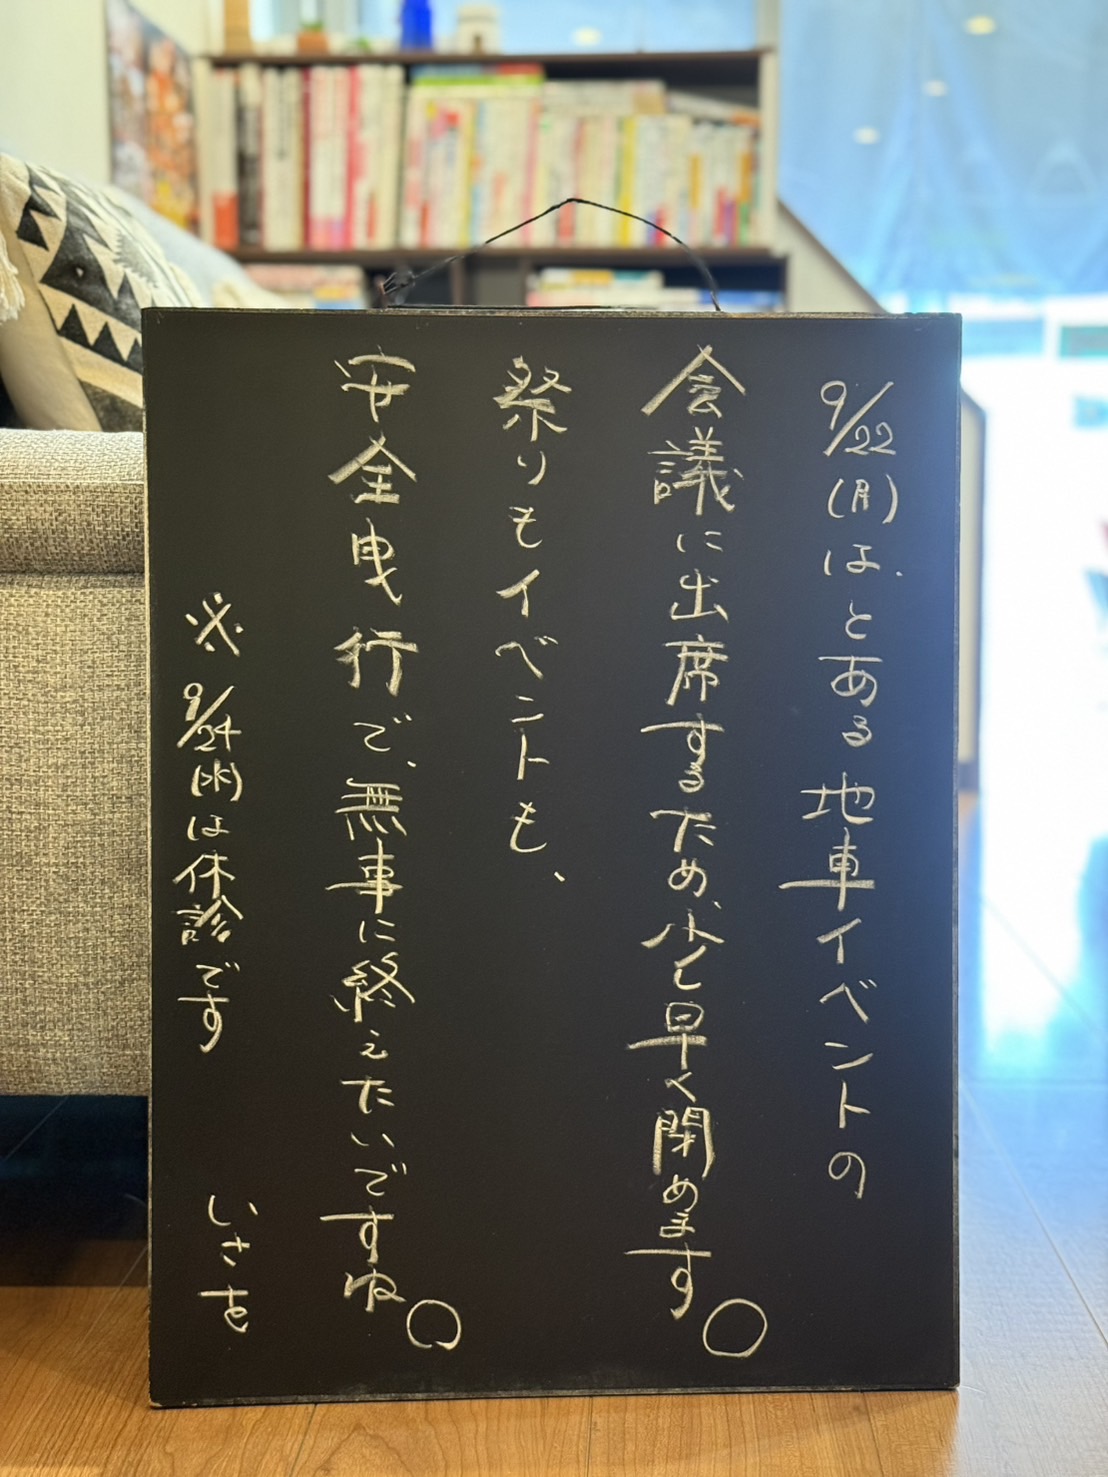 9/22(月)は、とある地車イベントの
会議に出席するため、少し早く閉めます。
祭りもイベントも、
安全曳行で、無事に終えたいですね。
※9/24(水)は休診です
いさを